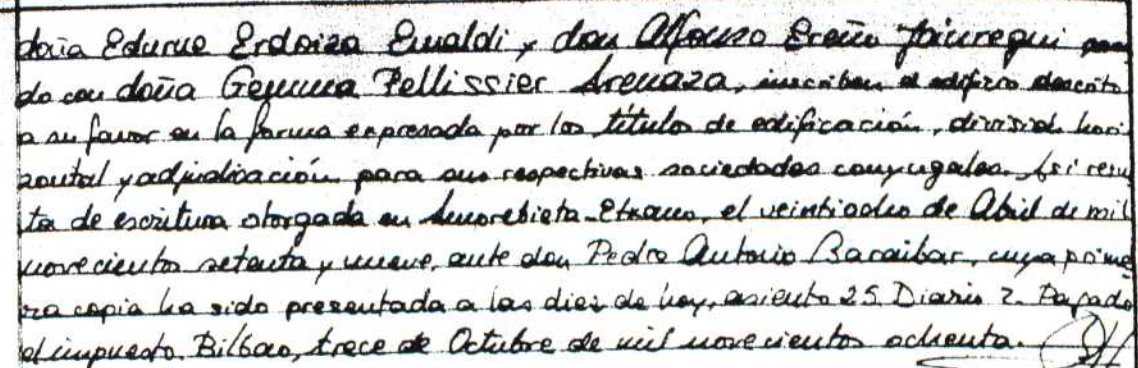 doña Edurne Erdoiza Ernaldi y don Alfonso Ereño Jáuregui casa
do con doña Gemma Pellissier Arenaza, inscriben el edificio descrito
a su favor en la forma expresada por los títulos de edificación, división hori
zontal y adjudicación para sus respectivas sociedades conyugales. Así resul
ta de escritura otorgada en Amorebieta-Etxano, el veintiocho de Abril de mil
novecientos setenta y nueve, ante don Pedro Antonio Baraibar, cuya prime
ra copia ha sido presentada a las diez de hoy, asiento 25 Diario 2. Pagado
el impuesto. Bilbao, trece de Octubre de mil novecientos ochenta.